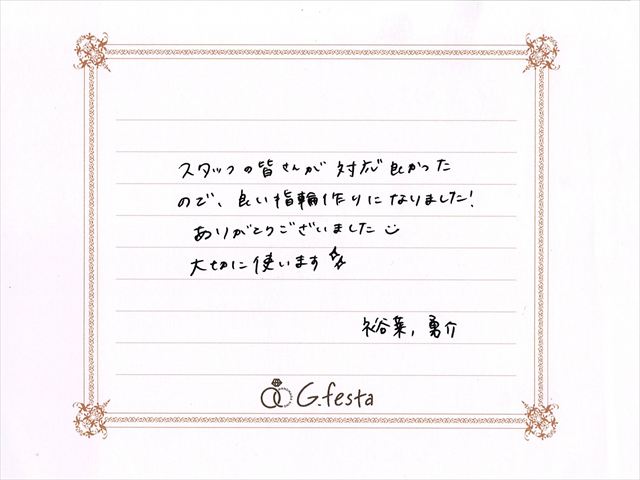 スタッフの皆さんが対応良かった
ので、良い指輪作りになりました!
ありがとうございました
大切に使います
裕菜, 勇介
G.festa